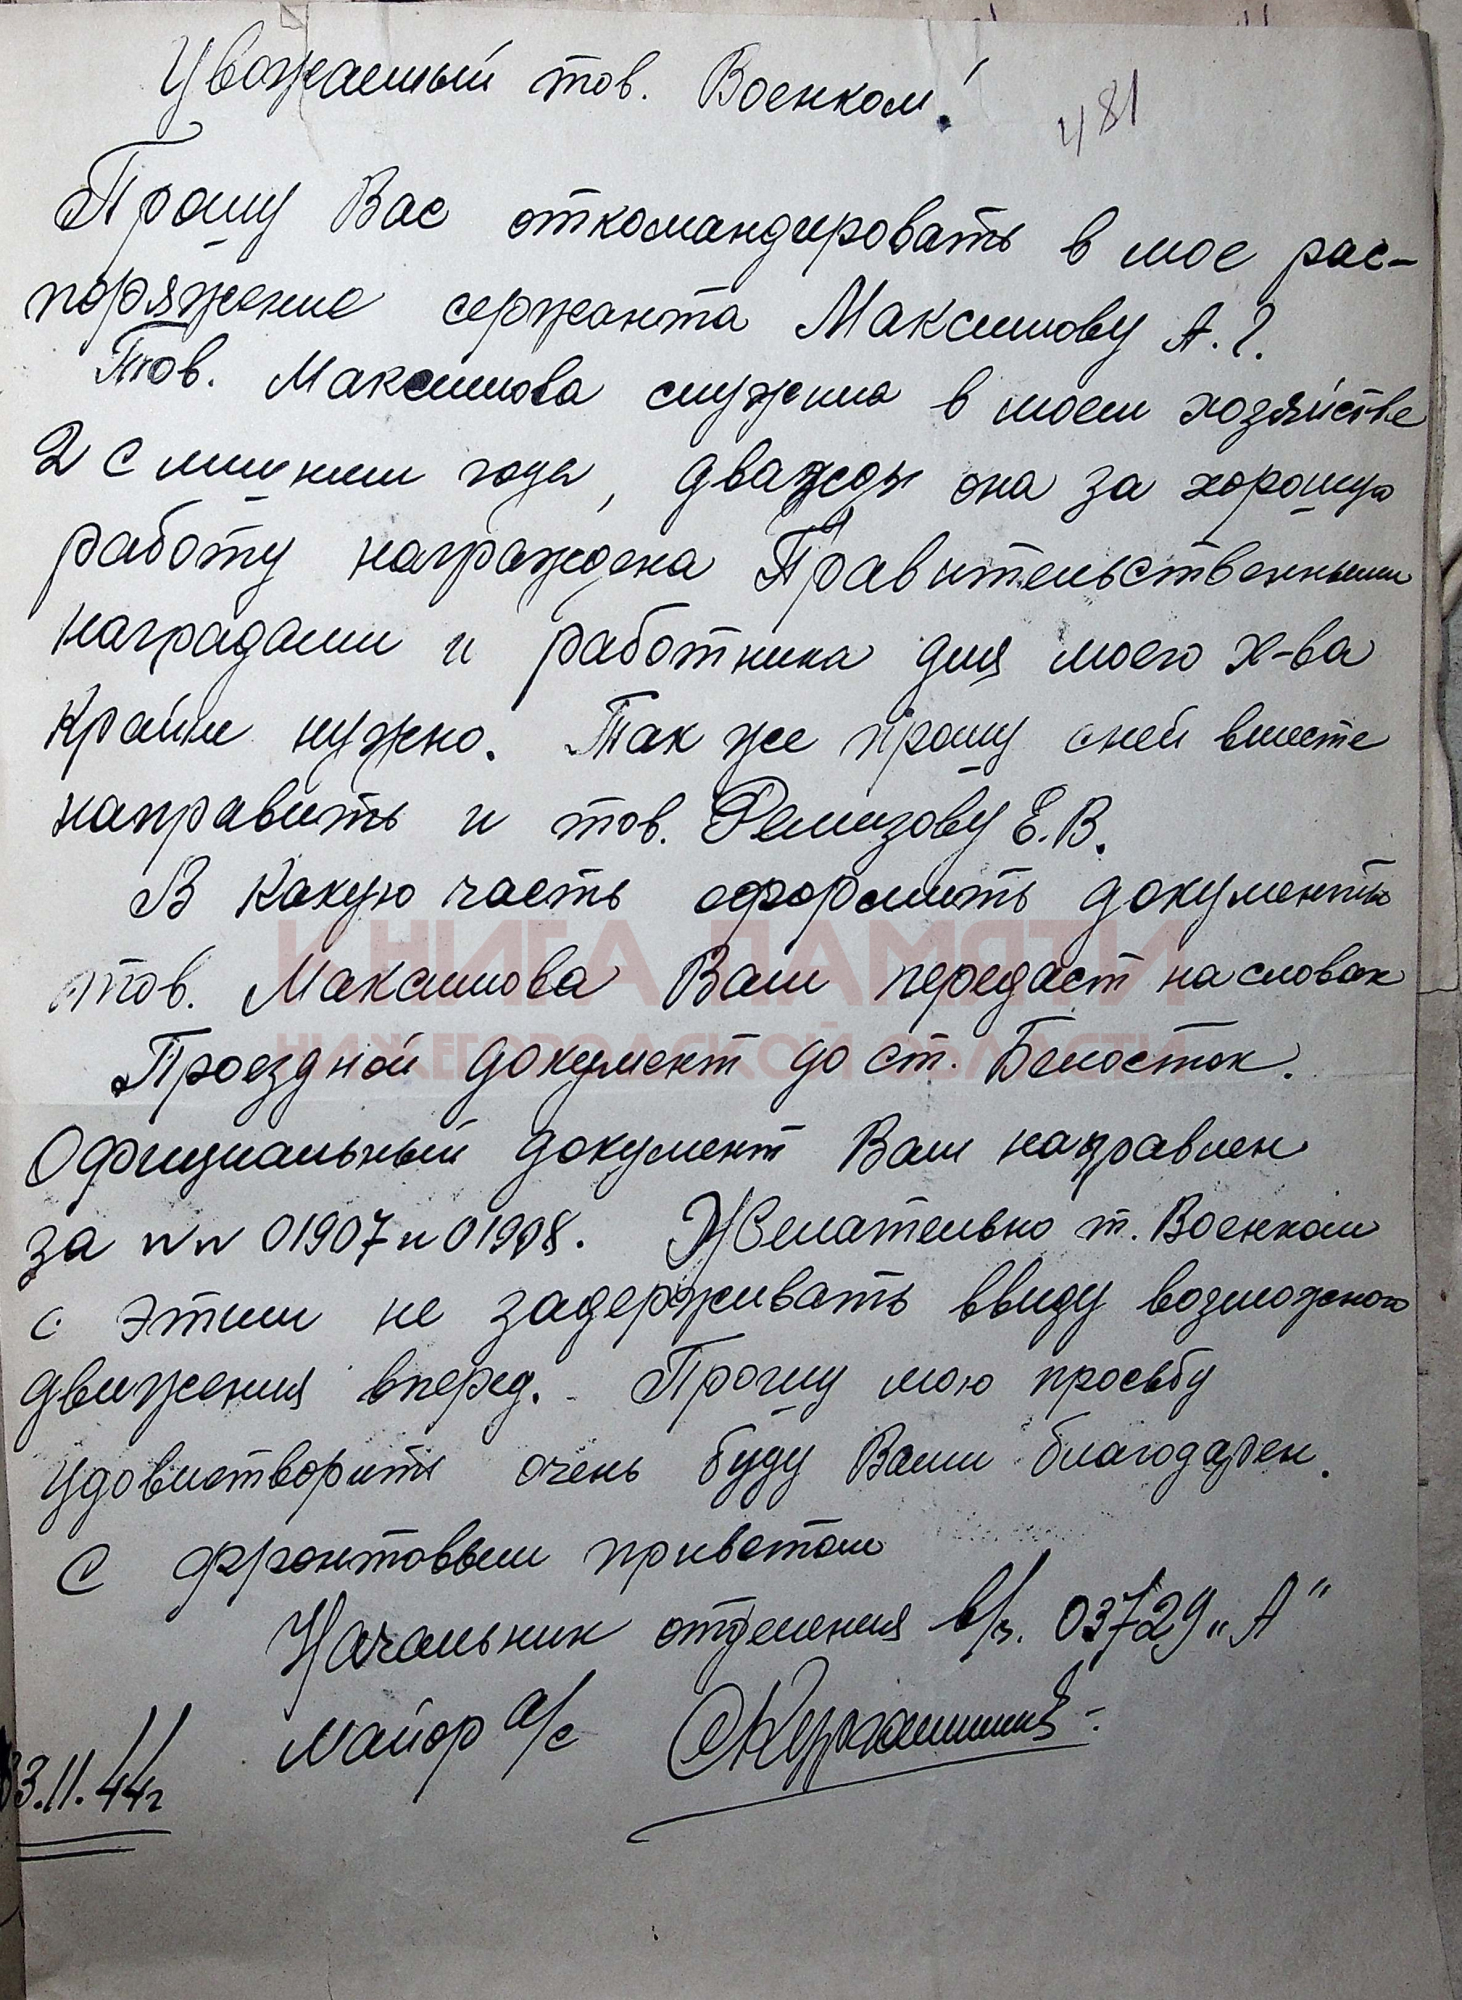 Уважаемый тов. Военком!
481
Прошу Вас откомандировать в мое рас-
поряжение сержанта Максимову А. Г.
Тов. Максимова служила в моем хозяйстве
2 с лишним года, дважды она за хорошую
работу награждена Правительственными
наградами и работника для моего х-ва
крайне нужно. Так же прошу с ней вместе
направить и тов. Ремизову Е. В.
В какую часть оформить документы
тов. Максимова Вам передаст на словах
КНИГА ПАМЯТИ
НИЖЕГОРОДСКОЙ ОБЛАСТИ
Проездной документ до ст. Белосток.
Официальный документ Вам направлен
за №№ 01907 и 01908. Желательно т. Военком
с этим не задерживать ввиду возможного
движения вперед. Прошу мою просьбу
удовлетворить очень буду Вами благодарен.
С фронтовым приветом
Начальник отделения в/ч. 03729 „А"
Майор а/с
3.11.44г